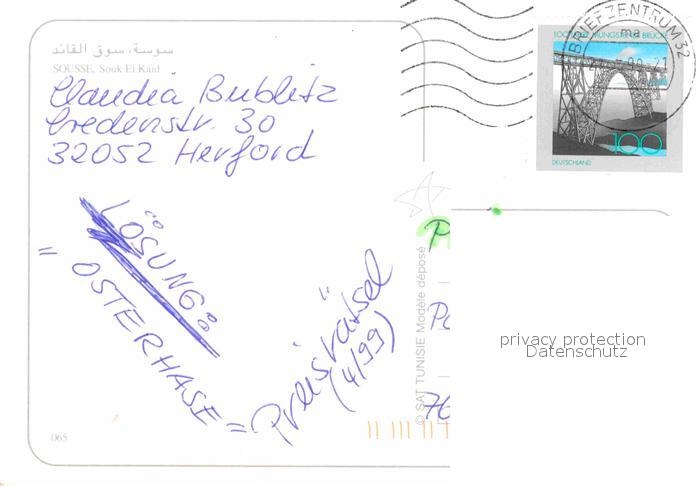 سوسة، سوق القائد
SOUSSE, Souk El Kaid
Claudia Bublitz
Credenstr. 30
32052 Herford
LÖSUNG:
"OSTERHASE"
Preisrätsel
(4/99)
065
© SAT TUNISIE Modèle déposé
P
76
BRIEFZENTRUM 32
ma
21
MÜNGSTENER BRÜCKE
100
DEUTSCHLAND
privacy protection
Datenschutz